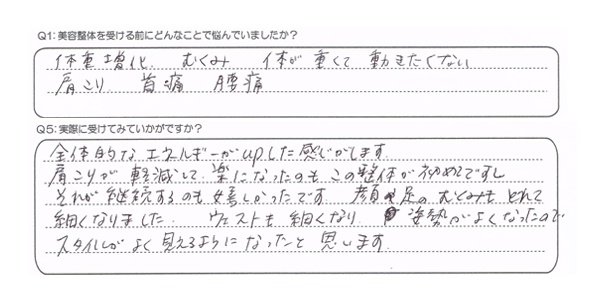 Q1:美容整体を受ける前にどんなことで悩んでいましたか?
体重増化 むくみ 体が重くて動きたくない
肩こり 首痛 腰痛
Q5:実際に受けてみていかがですか?
全体的なエネルギーがupした感じがします
肩こりが軽減して、楽になったのもこの整体が初めてですし
それが継続するのも嬉しかったです。顔、足のむくみもとれて
細くなりました ウェストも細くなり 姿勢がよくなったので
スタイルがよく見えるようになったと思います